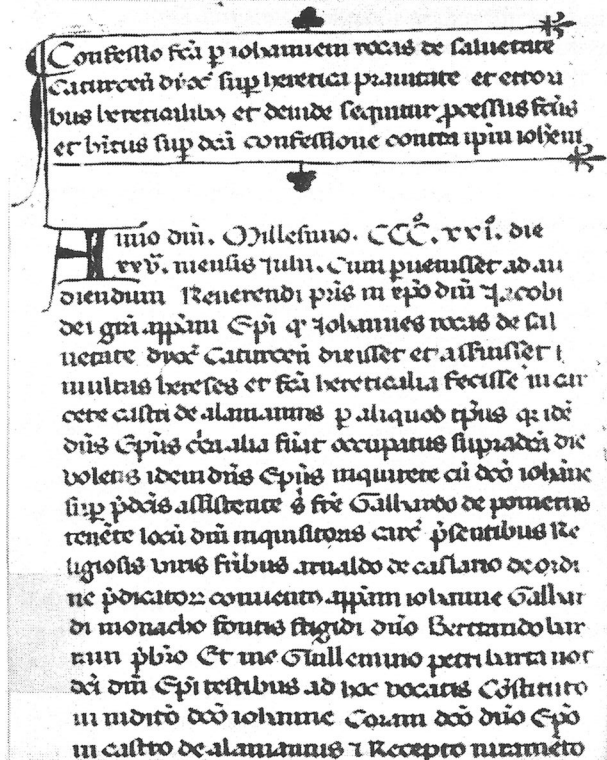 Confessio fca p iohannem rocas de saluetate
Caturcen dyoc sup heretica prauitate et errori
bus hereticalibus et deinde sequitur pcessus fcus
et hitus sup dca confessione contra ipm iohem
Anno dni. Millesimo. CCC. xxi. die
xxv. mensis Iulii. Cum puenisset ad au
dienciam Reuerendi pris in xpo dni Iacobi
dei gra appam Epi q Iohannes rocas de sal
uetate dyoc Caturcen dixisset et asseruisset
multas hereses et fca hereticalia fecisse in car
cere castri de alamannis p aliquod tpus q ide
dns Eps circa alia fuit occupatus supradca die
volens idem dns Eps inquirere cu dco iohane
sup pdcis assistente s fre Gallardo de pomeriis
tenete locu dni inquisitoris carc psentibus Re
ligiosis viris fribus arnaldo de caslario de ordi
ne pdicator conuentus appam iohanne Gallar
di monacho fontis frigidi dno Bertrando bar
rau pbro Et me Guillermo petri barta not
dci dni Epi testibus ad hoc vocatis Costituto
in iudico dco iohanne Coram dco dno Epo
in castro de alamannis ⁊ Recepto iurameto